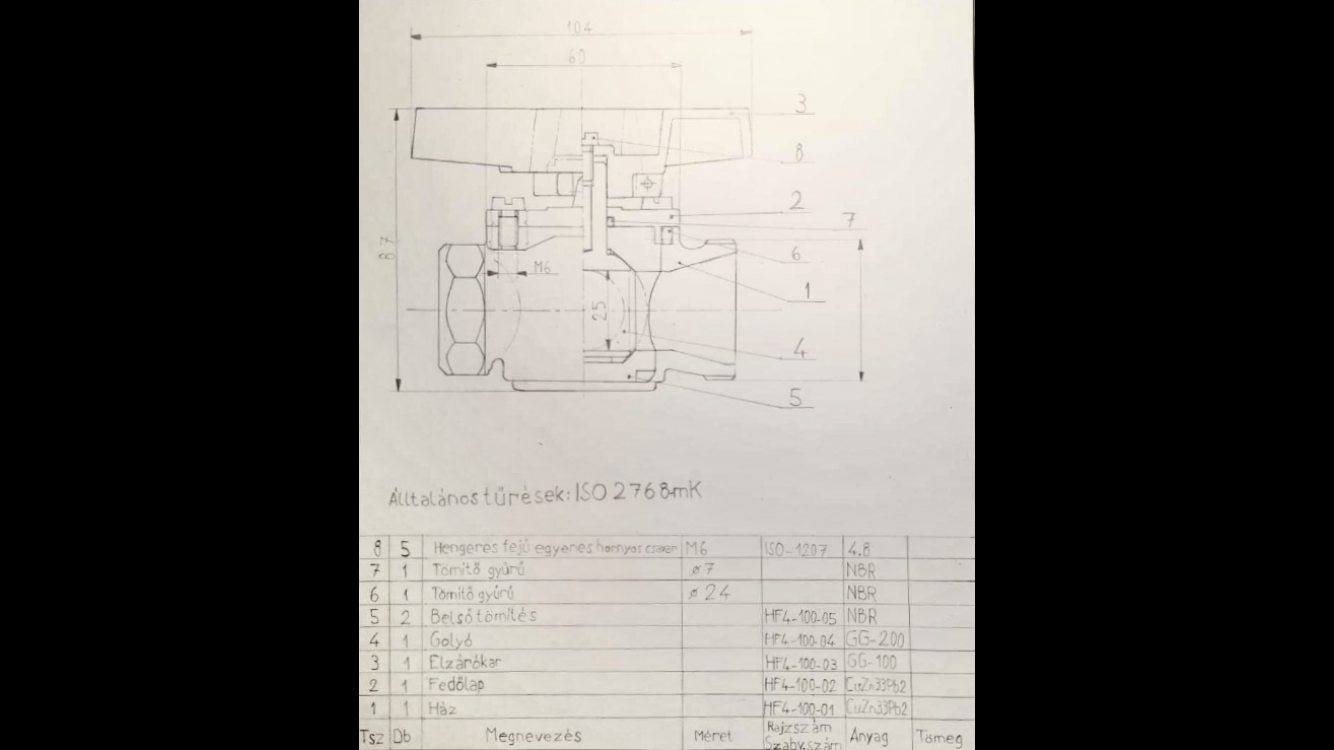 104
60
3
8
2
7
87
6
M6
1
25
4
5
Álltalános tűrések: ISO 2768-mK
8 5 Hengeres fejű egyenes hornyos csavar M6 ISO-1207 4.8
7 1 Tömítő gyűrű ø7 NBR
6 1 Tömítő gyűrű ø24 NBR
5 2 Belső tömítés HF4-100-05 NBR
4 1 Golyó HF4-100-04 GG-200
3 1 Elzárókar HF4-100-03 GG-100
2 1 Fedőlap HF4-100-02 CuZn33Pb2
1 1 Ház HF4-100-01 CuZn33Pb2
Tsz Db Megnevezés Méret Rajzszám Szabv.szám Anyag Tömeg